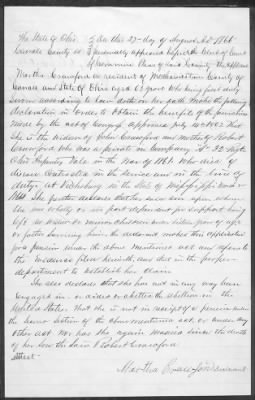 The State of Ohio } On this 27 day of August AD 1866
Carroll County SS } personally appeared before the Clerk of Court
of Common Pleas of said County the
Martha Crawford a resident of Mechanicstown County of
and State of Ohio aged 63 years who being first duly
Sworn according to law doth on her oath make the following
declaration in order to obtain the benefit of the provisions
made by the act of Congress approved July 14 1862 that
She is the widow of John Crawford and mother of Robert
Crawford who was a private in Company
Ohio Regiment Vols in the War of 1861 who died of
disease contracted in the service and in the line of
duty at Vicksburg in the State of Mississippi
She further declares that her said son upon whom
She was wholly or in part dependent for support having
left no widow or minor children under sixteen years of age
or father surviving him the declarant makes this application
for a pension under the above mentioned act and refers to
the evidence filed herewith and that in the proper
department to establish her claim
She also declares that she has not in any way been
engaged in or aided or abetted the rebellion in the
United States that she is not in receipt of a pension under
the second section of the above mentioned act or under any
other act nor has she again married since the death
of her son the said Robert Crawford
Attest
Martha Crawford